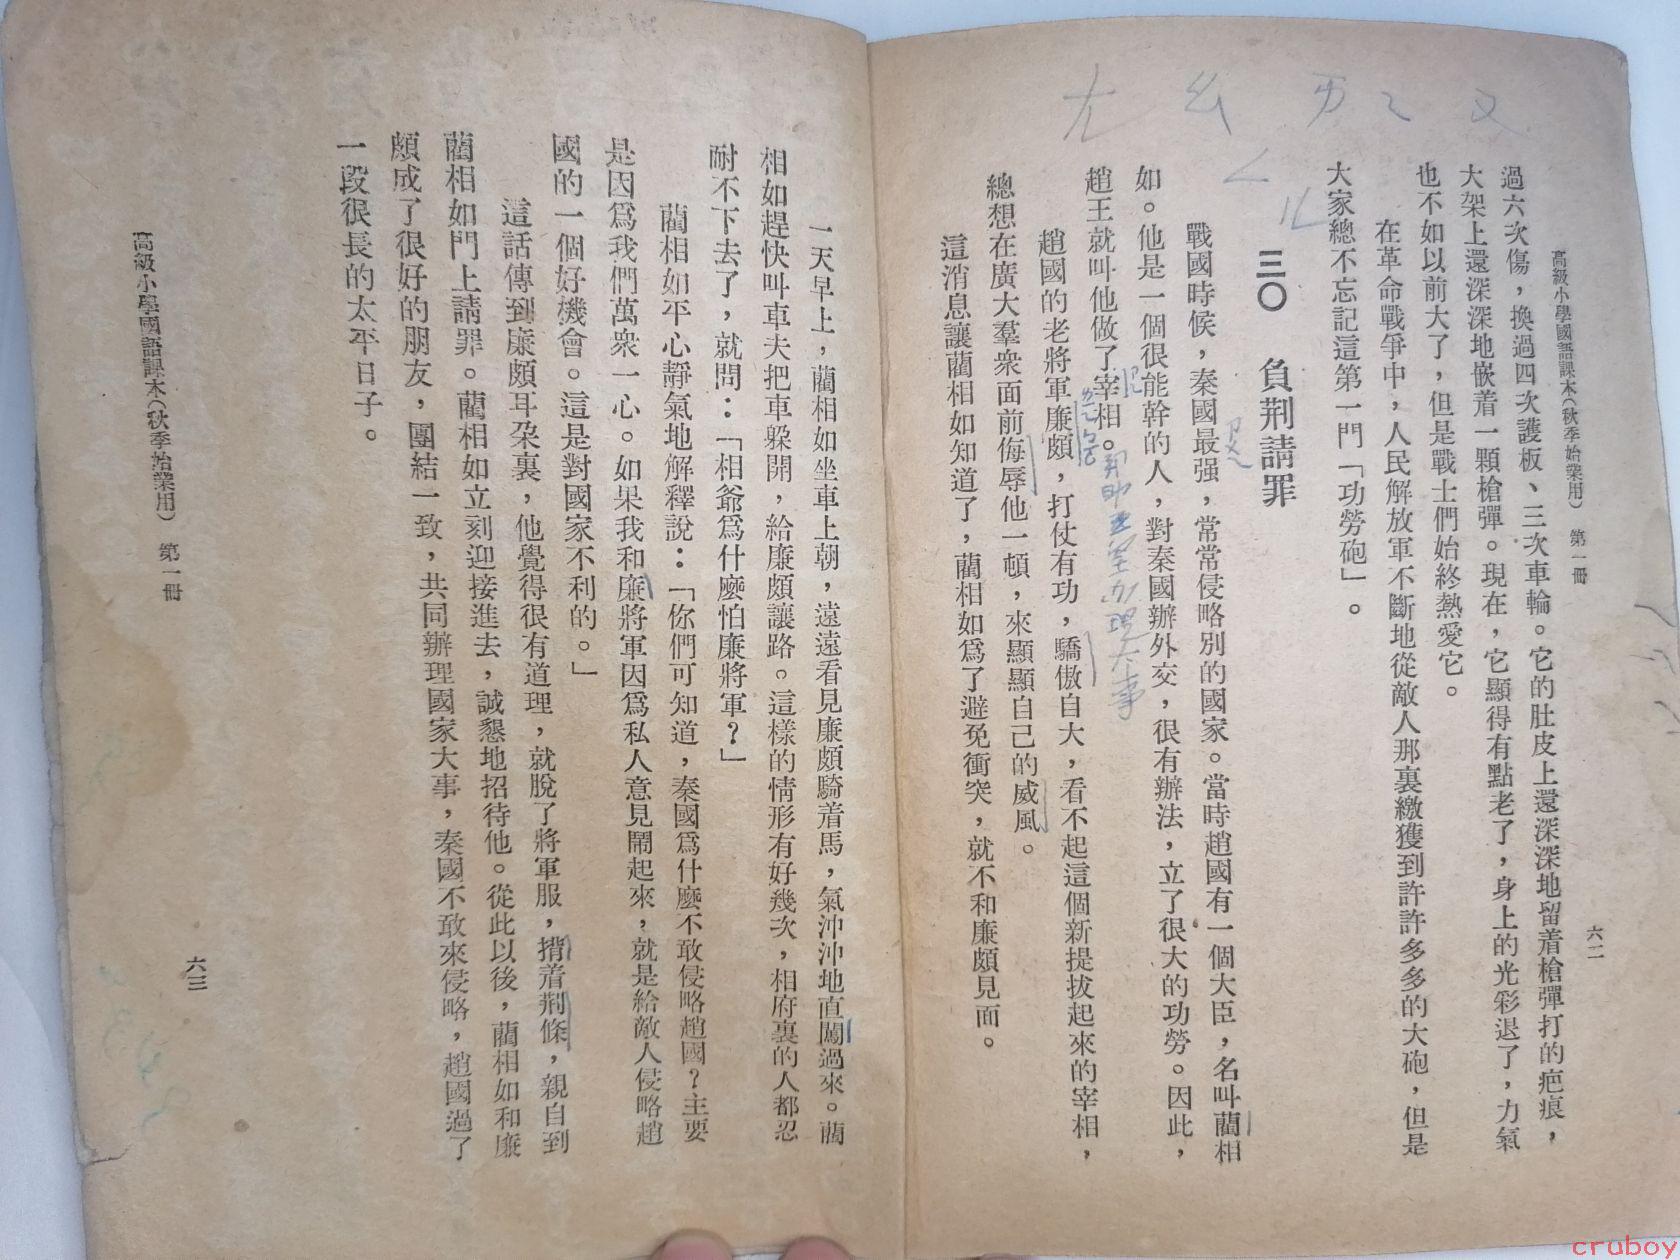 高級小學國語課本（秋季始業用）　第一冊
六二
過六次傷，換過四次護板、三次車輪。它的肚皮上還深深地留着槍彈打的疤痕，
大架上還深深地嵌着一顆槍彈。現在，它顯得有點老了，身上的光彩退了，力氣
也不如以前大了，但是戰士們始終熱愛它。
在革命戰爭中，人民解放軍不斷地從敵人那裏繳獲到許許多多的大砲，但是
大家總不忘記這第一門「功勞砲」。
三〇　負荊請罪
戰國時候，秦國最强，常常侵略別的國家。當時趙國有一個大臣，名叫藺相
如。他是一個很能幹的人，對秦國辦外交，很有辦法，立了很大的功勞。因此，
趙王就叫他做了宰相。
幫助王室办理大事
趙國的老將軍廉頗，打仗有功，驕傲自大，看不起這個新提拔起來的宰相，
總想在廣大羣衆面前侮辱他一頓，來顯顯自己的威風。
這消息讓藺相如知道了，藺相如爲了避免衝突，就不和廉頗見面。
一天早上，藺相如坐車上朝，遠遠看見廉頗騎着馬，氣沖沖地直闖過來。藺
相如趕快叫車夫把車躲開，給廉頗讓路。這樣的情形有好幾次，相府裏的人都忍
耐不下去了，就問：「相爺爲什麼怕廉將軍？」
藺相如平心靜氣地解釋說：「你們可知道，秦國爲什麼不敢侵略趙國？主要
是因爲我們萬衆一心。如果我和廉將軍因爲私人意見鬧起來，就是給敵人侵略趙
國的一個好機會。這是對國家不利的。」
這話傳到廉頗耳朶裏，他覺得很有道理，就脫了將軍服，揹着荆條，親自到
藺相如門上請罪。藺相如立刻迎接進去，誠懇地招待他。從此以後，藺相如和廉
頗成了很好的朋友，團結一致，共同辦理國家大事，秦國不敢來侵略，趙國過了
一段很長的太平日子。
高級小學國語課本（秋季始業用）　第一冊
六三
cruboy